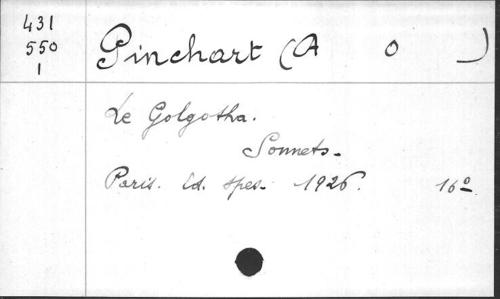 431
550
1
Pinchart (A o )
Le Golgotha.
Sonnets.
Paris. Ed. Spes. 1926. 16º